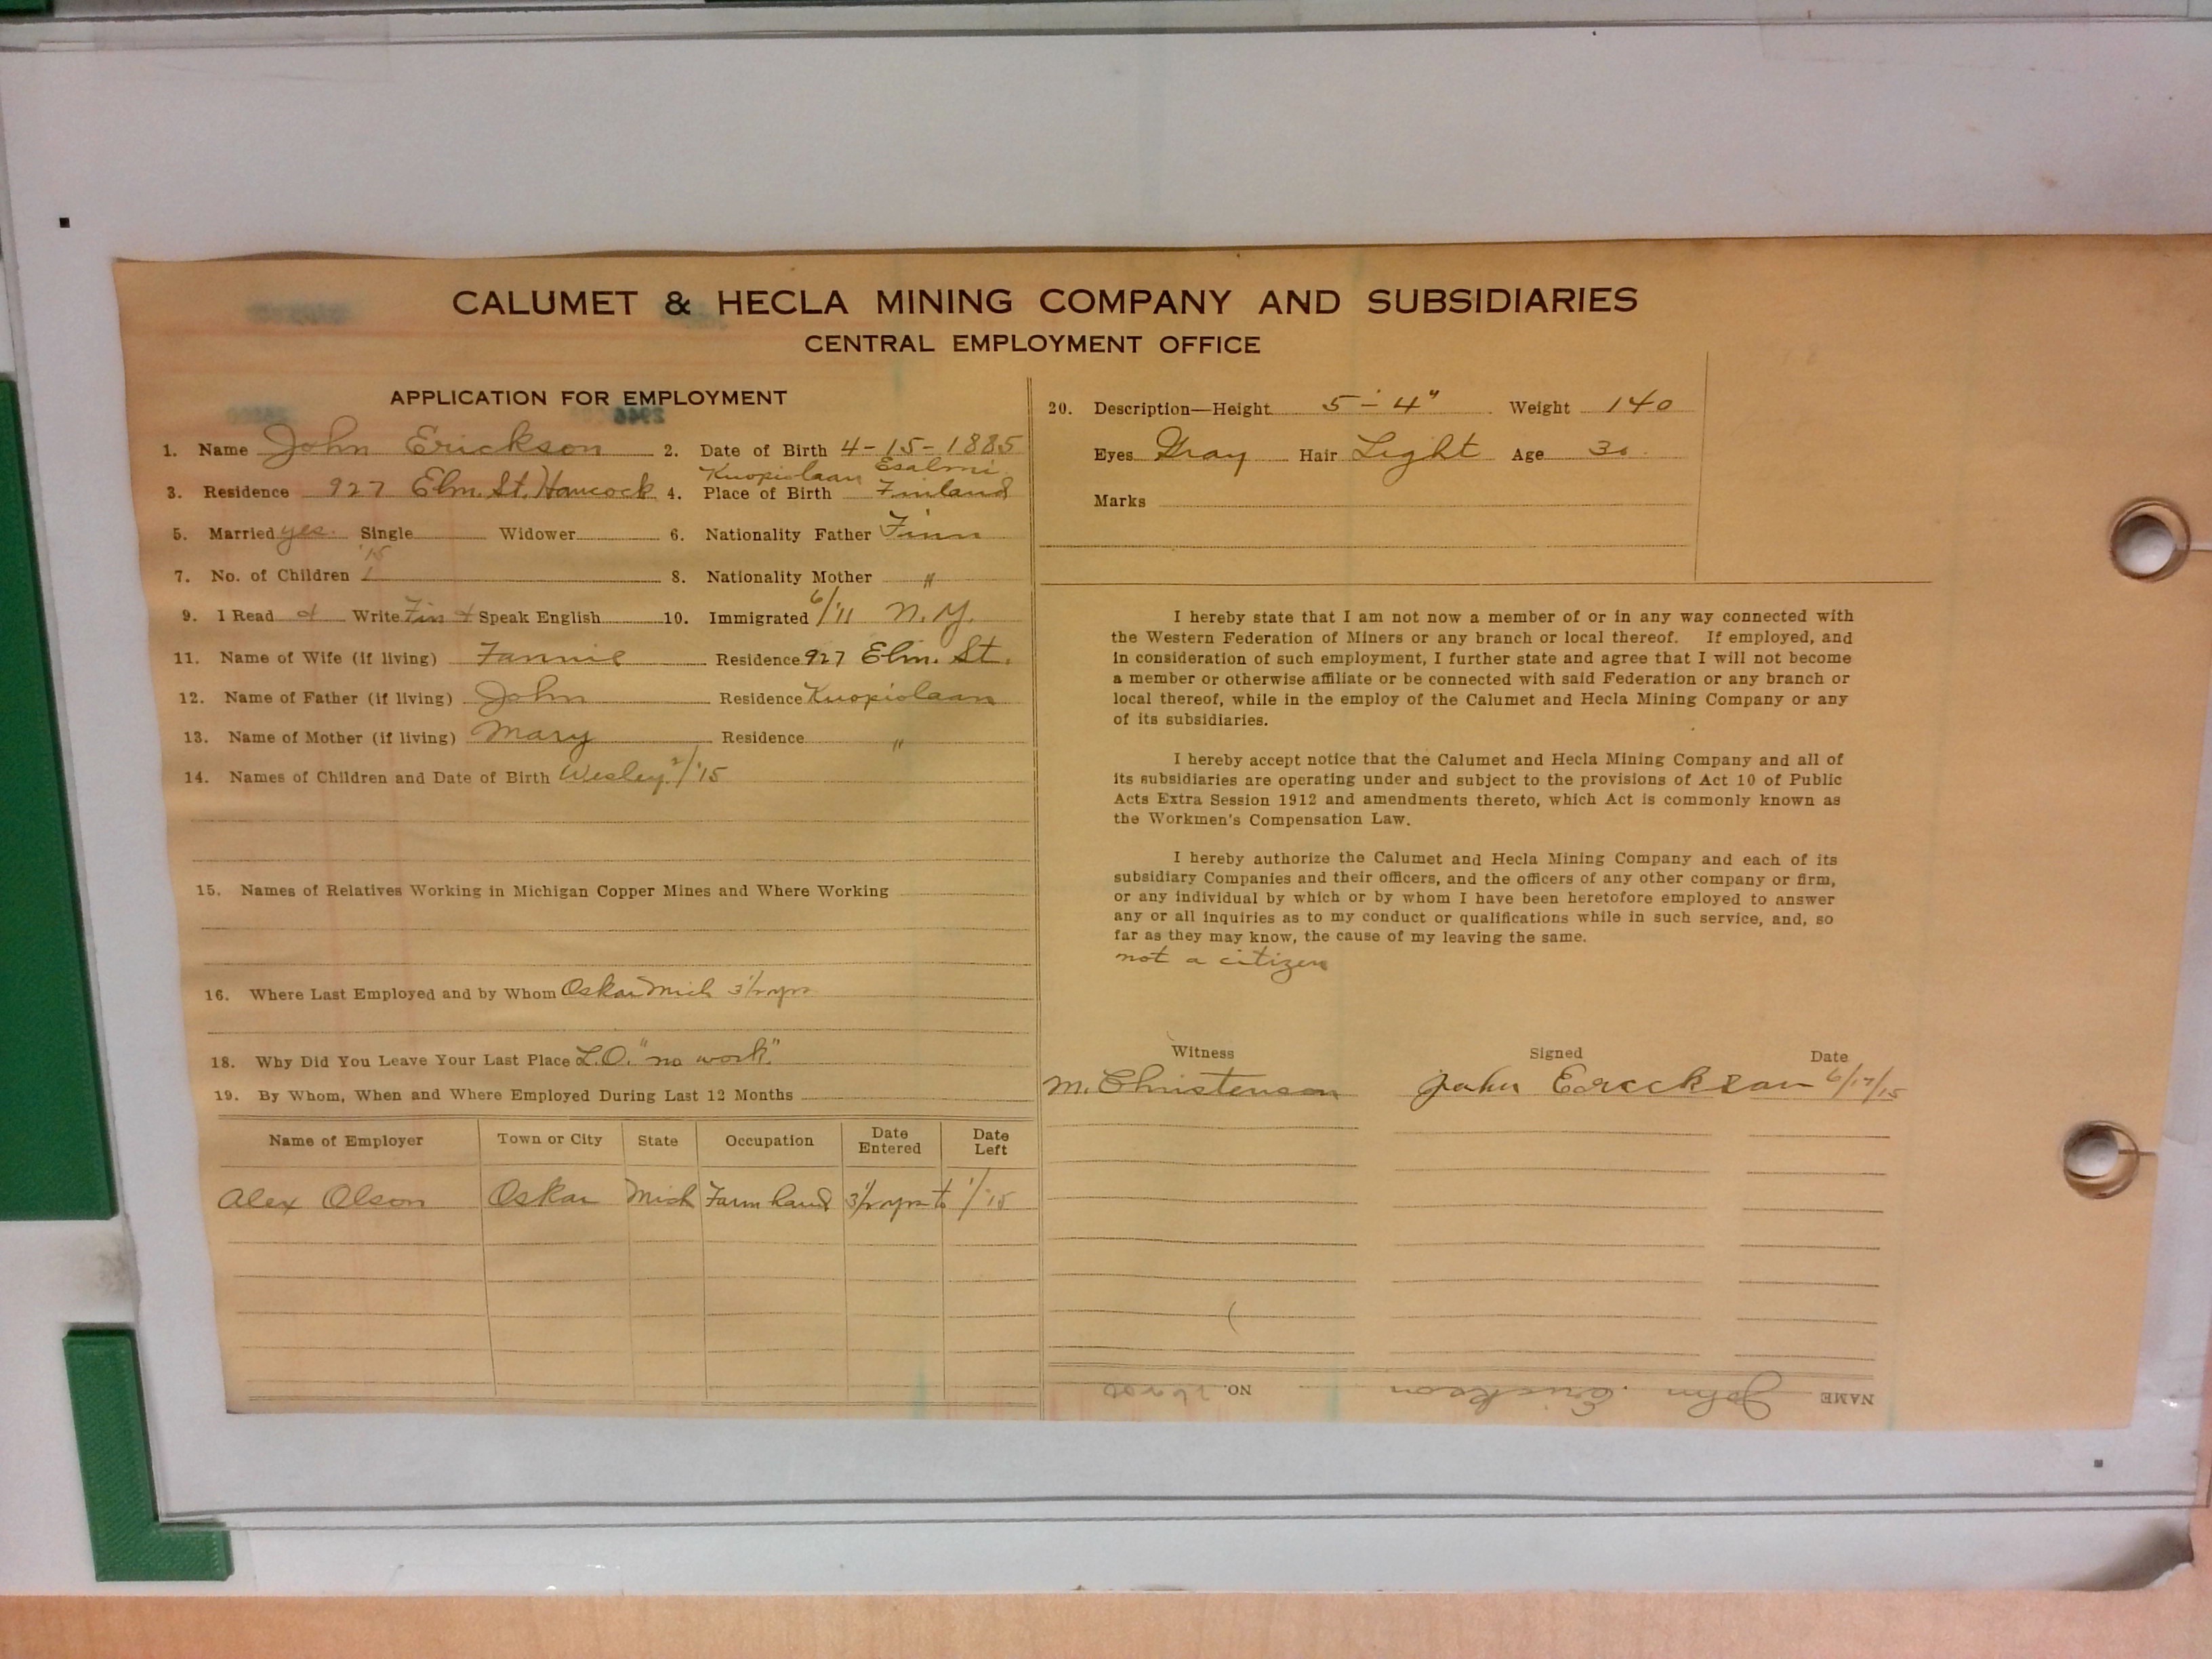 CALUMET & HECLA MINING COMPANY AND SUBSIDIARIES
CENTRAL EMPLOYMENT OFFICE
APPLICATION FOR EMPLOYMENT
1. Name John Erickson 2. Date of Birth 4-15-1885
Kuopiolaan Esalmi
3. Residence 927 Elm. St. Hancock 4. Place of Birth Finland
5. Married yes. Single Widower 6. Nationality Father Finn
'15
7. No. of Children 1 8. Nationality Mother "
9. I Read & Write Fin & Speak English 10. Immigrated 6/'11 N.Y.
11. Name of Wife (if living) Fannie Residence 927 Elm. St.
12. Name of Father (if living) John Residence Kuopiolaan
13. Name of Mother (if living) Mary Residence "
14. Names of Children and Date of Birth Wesley. 2/'15
15. Names of Relatives Working in Michigan Copper Mines and Where Working
16. Where Last Employed and by Whom Oskar Mich 3 1/2 yrs
18. Why Did You Leave Your Last Place L.O. "no work."
19. By Whom, When and Where Employed During Last 12 Months
Name of Employer Town or City State Occupation Date Entered Date Left
Alex Olson Oskar Mich Farm hand 3 1/2 yrs to 1/'15
20. Description—Height 5-4" Weight 140
Eyes Gray Hair Light Age 30
Marks
I hereby state that I am not now a member of or in any way connected with
the Western Federation of Miners or any branch or local thereof. If employed, and
in consideration of such employment, I further state and agree that I will not become
a member or otherwise affiliate or be connected with said Federation or any branch or
local thereof, while in the employ of the Calumet and Hecla Mining Company or any
of its subsidiaries.
I hereby accept notice that the Calumet and Hecla Mining Company and all of
its subsidiaries are operating under and subject to the provisions of Act 10 of Public
Acts Extra Session 1912 and amendments thereto, which Act is commonly known as
the Workmen's Compensation Law.
I hereby authorize the Calumet and Hecla Mining Company and each of its
subsidiary Companies and their officers, and the officers of any other company or firm,
or any individual by which or by whom I have been heretofore employed to answer
any or all inquiries as to my conduct or qualifications while in such service, and, so
far as they may know, the cause of my leaving the same.
not a citizen
Witness Signed Date
M. Christenson John Erickson 6/17/15
NAME John Erickson NO.